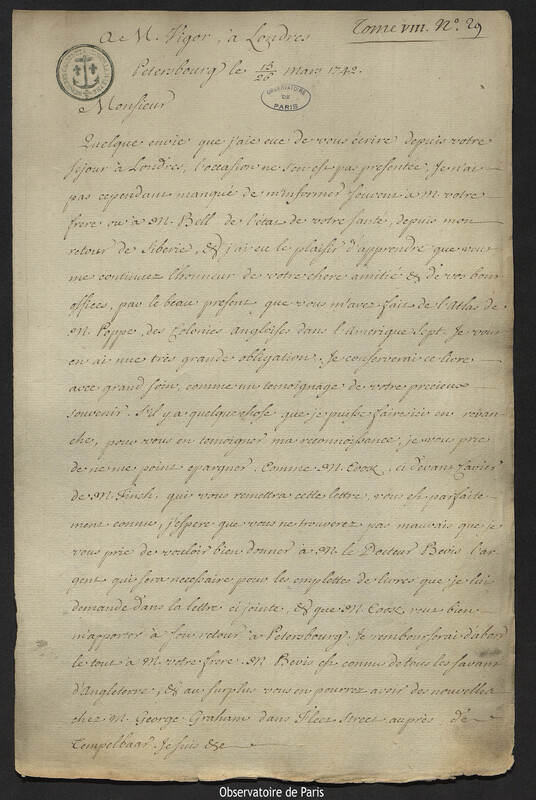 Tome VIII. N.º 29
A M. Vigor, à Londres
Petersbourg le 15/26 Mars 1742.
OBSERVATOIRE DE PARIS
Monsieur
Quelque envie que j'aie eue de vous écrire depuis votre
sejour à Londres, l'occasion ne s'en est pas presentée. Je n'ai
pas cependant manqué de m'informer souvent à M. votre
frere ou à M. Bell de l'état de votre santé, depuis mon
retour de Siberie, & j'ai eu le plaisir d'apprendre que vous
me continuez l'honneur de votre chere amitié & de vos bons
offices, par le beau present que vous m'avez fait de l'Atlas de
M. Poppe, des Colonies Angloises dans l'Amerique Sept. Je vous
en ai une très grande obligation. Je conserverai ce livre
avec grand soin, comme un temoignage de votre precieux
souvenir. S'il y a quelque chose que je puisse faire ici en revan
che, pour vous en temoigner ma reconnoissance, je vous prie
de ne me point epargner. Comme M. Cook, ci devant
de M. Finch, qui vous remettra cette lettre, vous est parfaite
ment connu, j'espere que vous ne trouverez pas mauvais que je
vous prie de vouloir bien donner à M. le Docteur Bevis l'ar
gent qui sera necessaire pour les emplettes de livres que je lui
demande dans la lettre ci jointe, & que M. Cook veut bien
m'apporter à son retour à Petersbourg. Je rembourserai d'abord
le tout à M. votre frere. M. Bevis est connu de tous les savans
d'Angleterre, & au surplus vous en pourrez avoir des nouvelles
chez M. George Graham dans Fleet Street auprès de
Tempelbaar. Je suis &c
Observatoire de Paris